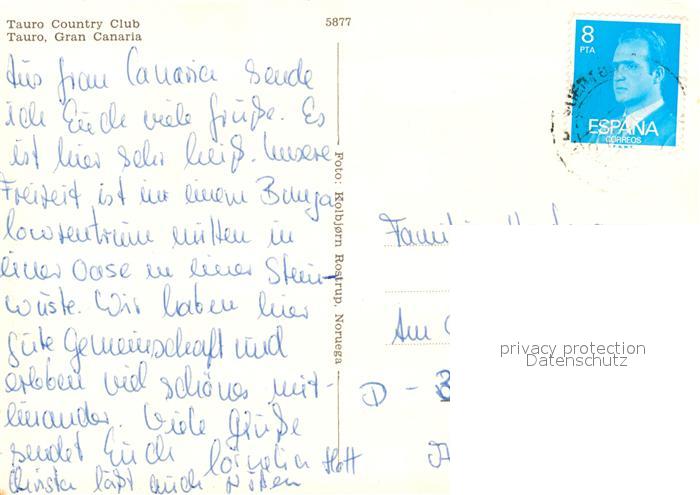 Tauro Country Club
Tauro, Gran Canaria
5877
8
PTA
ESPAÑA
CORREOS
Aus Gran Canaria sende
ich Euch viele Grüße. Es
ist hier sehr heiß. Unsere
Freizeit ist in einem Bunga
lowzentrum mitten in
einer Oase in einer Stein-
wüste. Wir haben hier
gute Gemeinschaft und
erleben viel schönes mit-
einander. Viele Grüße
sendet Euch Cornelia
Christa läßt auch grüßen
Foto: Kolbjørn Rostrup, Noruega
Famil
Am
D -
privacy protection
Datenschutz